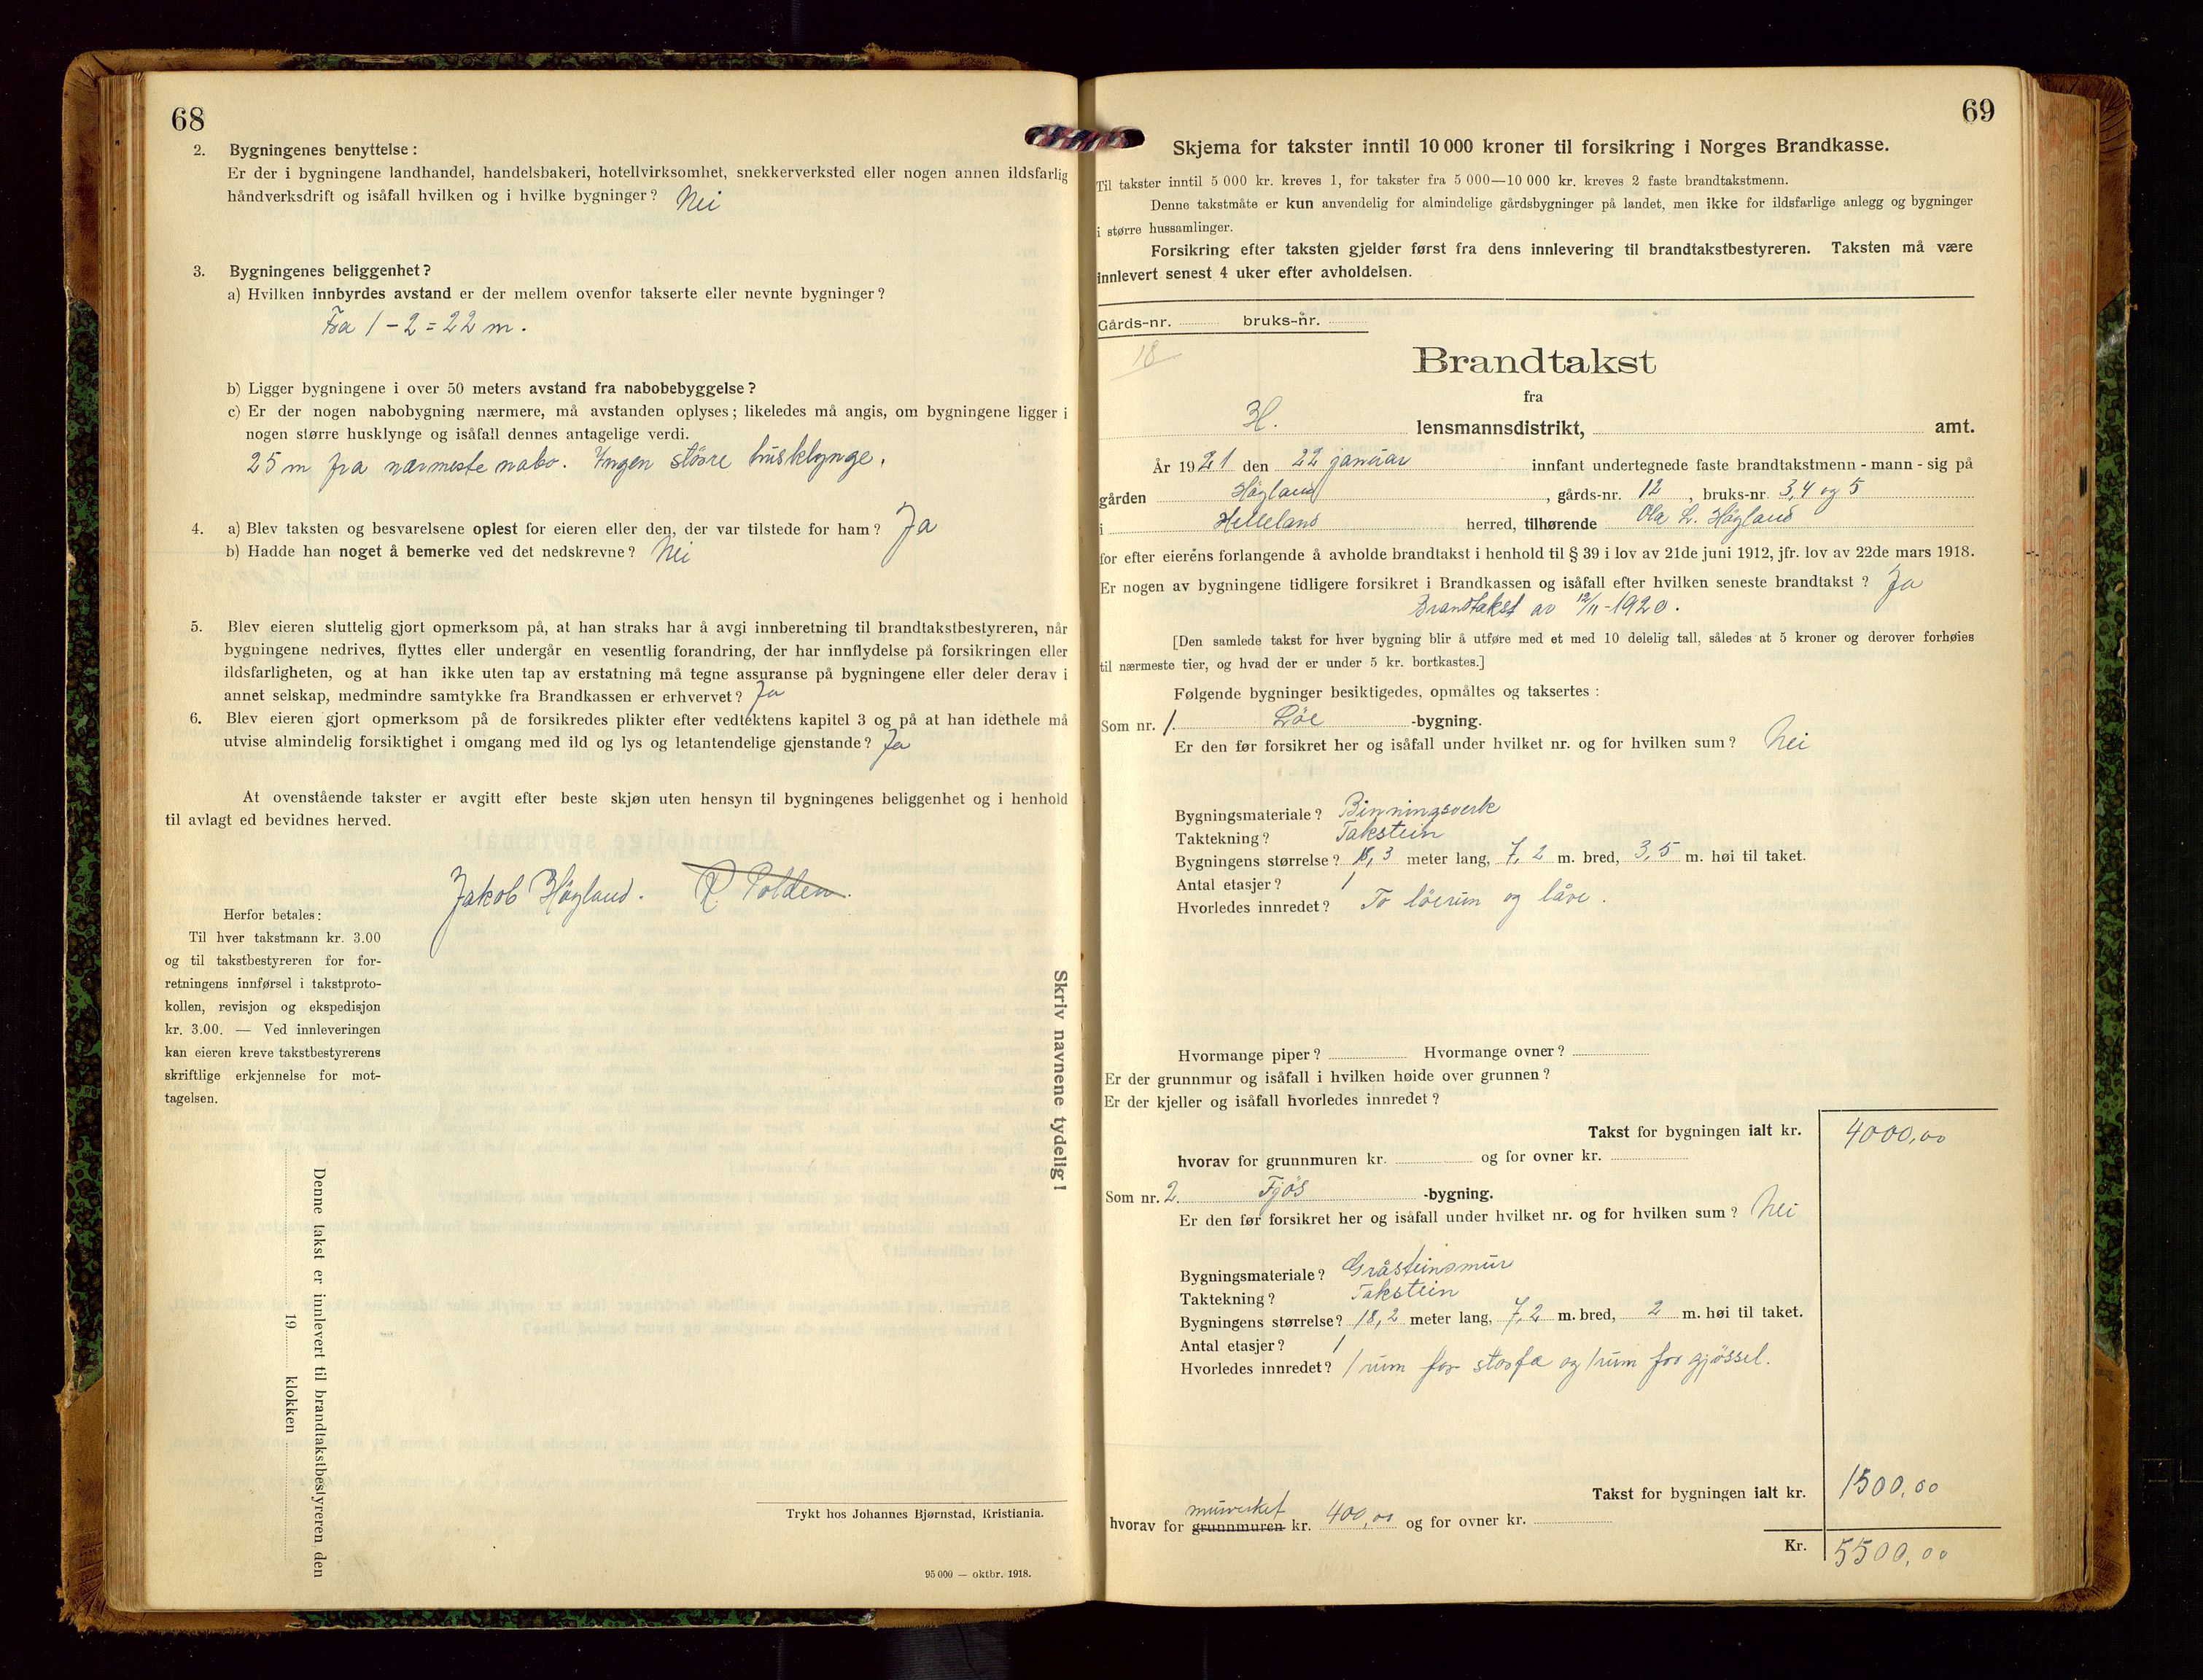 68
2. Bygningenes benyttelse :
Er der i bygningene landhandel, handelsbakeri, hotellvirksomhet, snekkerverksted eller nogen annen ildsfarlig
håndverksdrift og isåfall hvilken og i hvilke bygninger? Nei
3. Bygningenes beliggenhet?
a) Hvilken innbyrdes avstand er der mellem ovenfor takserte eller nevnte bygninger?
Fra 1 - 2 = 22 m.
b) Ligger bygningene i over 50 meters avstand fra nabobebyggelse?
c) Er der nogen nabobygning nærmere, må avstanden oplyses; likeledes må angis, om bygningene ligger i
nogen større husklynge og isåfall dennes antagelige verdi.
25 m fra nærmeste nabo. Ingen större husklynge.
4. a) Blev taksten og besvarelsene oplest for eieren eller den, der var tilstede for ham? Ja
b) Hadde han noget å bemerke ved det nedskrevne? Nei
5. Blev eieren sluttelig gjort opmerksom på, at han straks har å avgi innberetning til brandtakstbestyreren, når
bygningene nedrives, flyttes eller undergår en vesentlig forandring, der har innflydelse på forsikringen eller
ildsfarligheten, og at han ikke uten tap av erstatning må tegne assuranse på bygningene eller deler derav i
annet selskap, medmindre samtykke fra Brandkassen er erhvervet? Ja
6. Blev eieren gjort opmerksom på de forsikredes plikter efter vedtektens kapitel 3 og på at han idethele må
utvise almindelig forsiktighet i omgang med ild og lys og letantendelige gjenstande? Ja
At ovenstående takster er avgitt efter beste skjøn uten hensyn til bygningenes beliggenhet og i henhold
til avlagt ed bevidnes herved.
Jakob Högland. R Polden.
Herfor betales:
Til hver takstmann kr. 3.00
og til takstbestyreren for for-
retningens innførsel i takstproto-
kollen, revisjon og ekspedisjon
kr. 3.00. — Ved innleveringen
kan eieren kreve takstbestyrerens
skriftlige erkjennelse for mot-
tagelsen.
Skriv navnene tydelig!
Denne takst er innlevert til brandtakstbestyreren den
19 klokken
Trykt hos Johannes Bjørnstad, Kristiania.
95 000 — oktbr. 1918.
69
Skjema for takster inntil 10 000 kroner til forsikring i Norges Brandkasse.
Til takster inntil 5 000 kr. kreves 1, for takster fra 5 000—10 000 kr. kreves 2 faste brandtakstmenn.
Denne takstmåte er kun anvendelig for almindelige gårdsbygninger på landet, men ikke for ildsfarlige anlegg og bygninger
i større hussamlinger.
Forsikring efter taksten gjelder først fra dens innlevering til brandtakstbestyreren. Taksten må være
innlevert senest 4 uker efter avholdelsen.
Gårds-nr. bruks-nr.
18
Brandtakst
fra
H. lensmannsdistrikt, amt.
År 1921 den 22 januar innfant undertegnede faste brandtakstmenn - mann - sig på
gården Högland, gårds-nr. 12, bruks-nr. 3, 4 og 5
i Helleland herred, tilhørende Ola L. Högland
for efter eierens forlangende å avholde brandtakst i henhold til § 39 i lov av 21de juni 1912, jfr. lov av 22de mars 1918.
Er nogen av bygningene tidligere forsikret i Brandkassen og isåfall efter hvilken seneste brandtakst? Ja
Brandtakst av 12/11-1920.
[Den samlede takst for hver bygning blir å utføre med et med 10 delelig tall, således at 5 kroner og derover forhøies
til nærmeste tier, og hvad der er under 5 kr. bortkastes.]
Følgende bygninger besiktigedes, opmåltes og taksertes :
Som nr. 1. Löe -bygning.
Er den før forsikret her og isåfall under hvilket nr. og for hvilken sum? Nei
Bygningsmateriale? Binningsverk
Taktekning? Takstein
Bygningens størrelse? 18,3 meter lang, 7,2 m. bred, 3,5 m. høi til taket.
Antal etasjer? 1
Hvorledes innredet? To löerum og låve.
Hvormange piper? Hvormange ovner?
Er der grunnmur og isåfall i hvilken høide over grunnen?
Er der kjeller og isåfall hvorledes innredet?
Takst for bygningen ialt kr. 4000,00
hvorav for grunnmuren kr. og for ovner kr.
Som nr. 2. Fjös -bygning.
Er den før forsikret her og isåfall under hvilket nr. og for hvilken sum? Nei
Bygningsmateriale? Gråsteinsmur
Taktekning? Takstein
Bygningens størrelse? 18,2 meter lang, 7,2 m. bred, 2 m. høi til taket.
Antal etasjer? 1
Hvorledes innredet? 1 rum for storfe og 1 rum for gjössel.
Takst for bygningen ialt kr. 1500,00
murverket
hvorav for grunnmuren kr. 400,00 og for ovner kr.
Kr. 5500,00